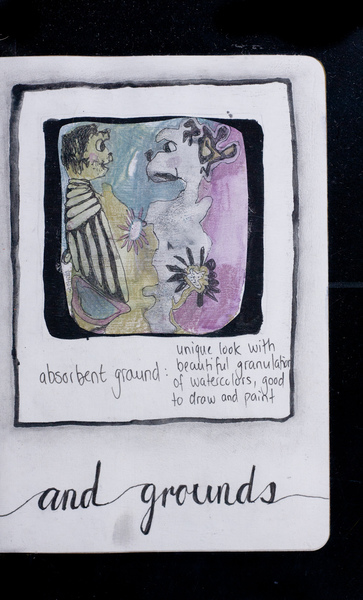 unique look with
absorbent ground: beautiful granulation
of watercolors, good
to draw and paint
and grounds